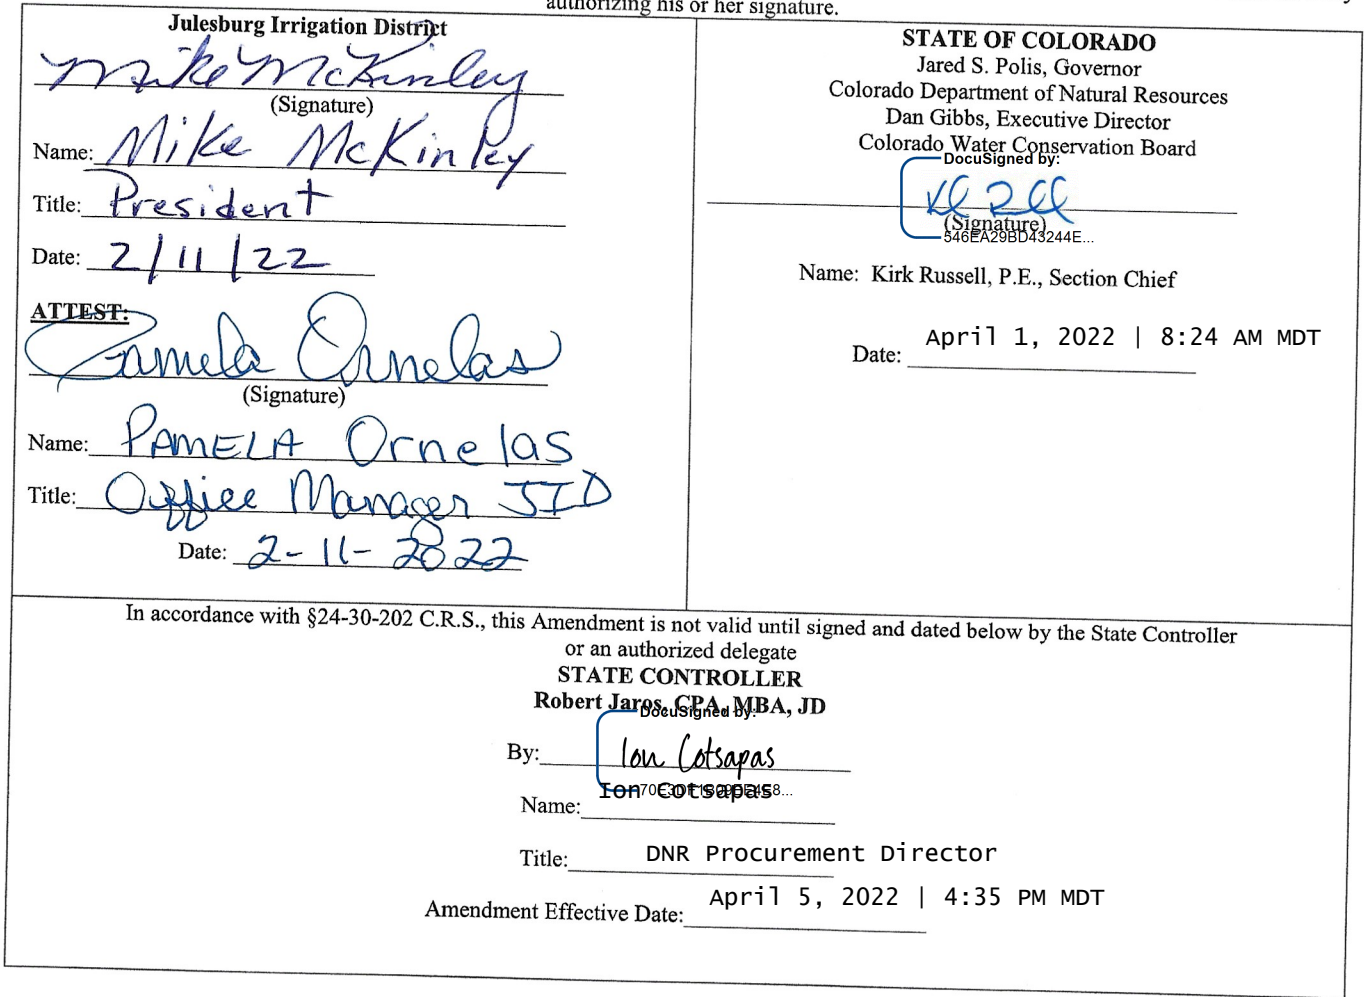 authorizing his or her signature.
Julesburg Irrigation District
Mike McKinley
(Signature)
Name: Mike McKinley
Title: President
Date: 2/11/22
ATTEST:
Pamela Ornelas
(Signature)
Name: PAMELA Ornelas
Title: Office Manager JID
Date: 2-11-2022
STATE OF COLORADO
Jared S. Polis, Governor
Colorado Department of Natural Resources
Dan Gibbs, Executive Director
Colorado Water Conservation Board
DocuSigned by:
(Signature)
546EA29BD43244E...
Name: Kirk Russell, P.E., Section Chief
April 1, 2022 | 8:24 AM MDT
Date:
In accordance with §24-30-202 C.R.S., this Amendment is not valid until signed and dated below by the State Controller
or an authorized delegate
STATE CONTROLLER
Robert Jaros, CPA, MBA, JD
DocuSigned by:
By: Ion Cotsapas
Ion Cotsapas
Name:
Title: DNR Procurement Director
Amendment Effective Date: April 5, 2022 | 4:35 PM MDT